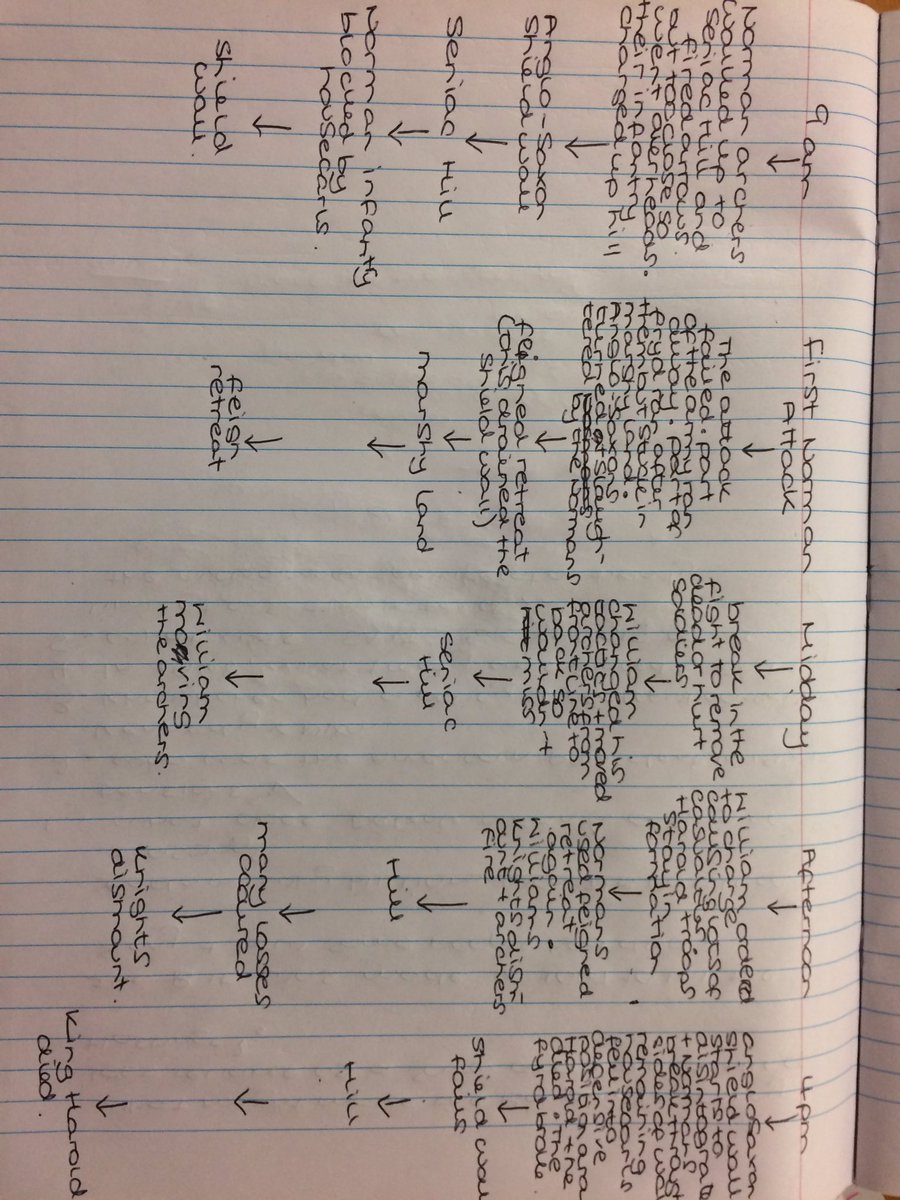 9am
Norman archers
walked up to
Senlac Hill and
fired arrows
but too close so
went over heads.
their infantry
charged up hill
Anglo-Saxon
Shield wall
Senlac Hill
Norman infanty
blocked by
housecarls.
Shield
wall.
First Norman
Attack
The attack
failed. part
of the army ran
away. part of
fryd ran after
them but stuck in
marshy land.
Anglo-saxons
turned + slaugh-
tered by the Normans
feigned retreat
(this drained the
shield wall)
marshy land
feign
retreat
Midday
break in the
fight to remove
dead or hurt
soldiers
William
changed his
archers from
front line to
back so
wouldn't
miss
Senlac
Hill
William
moving
the archers.
Afternoon
William ordered
to change
causing lots of
casualties
Harold troops
stay in
formation
Normans
used feigned
retreat
again.
Williams
knights dism-
ount + archers
fire
Hill
many losses
occured
knights
dismount.
4pm
anglo saxon
shield wall
starts to
disintegrate
+ Normans
break
sides of wall
remaining
housecarls
fell into
defensive
position and
Harold
died. The
fyrd broke
Shield wall
fails
Hill
King Harold
died.